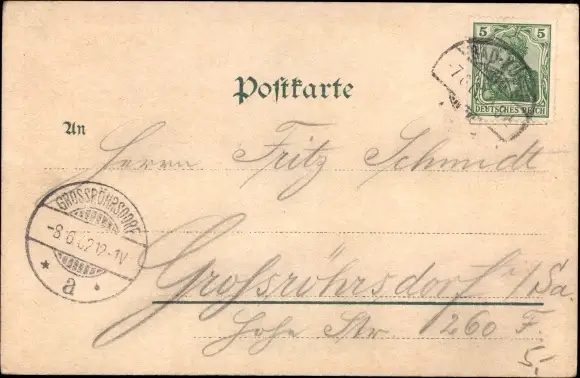 5 5
DEUTSCHES REICH
Postkarte
An
Herrn Fritz Schmidt
GROSSRÖHRSDORF
-8 6 02 12-1V
* a *
Großröhrsdorf i/Sa.
Hohe Str. 260 F.
5.